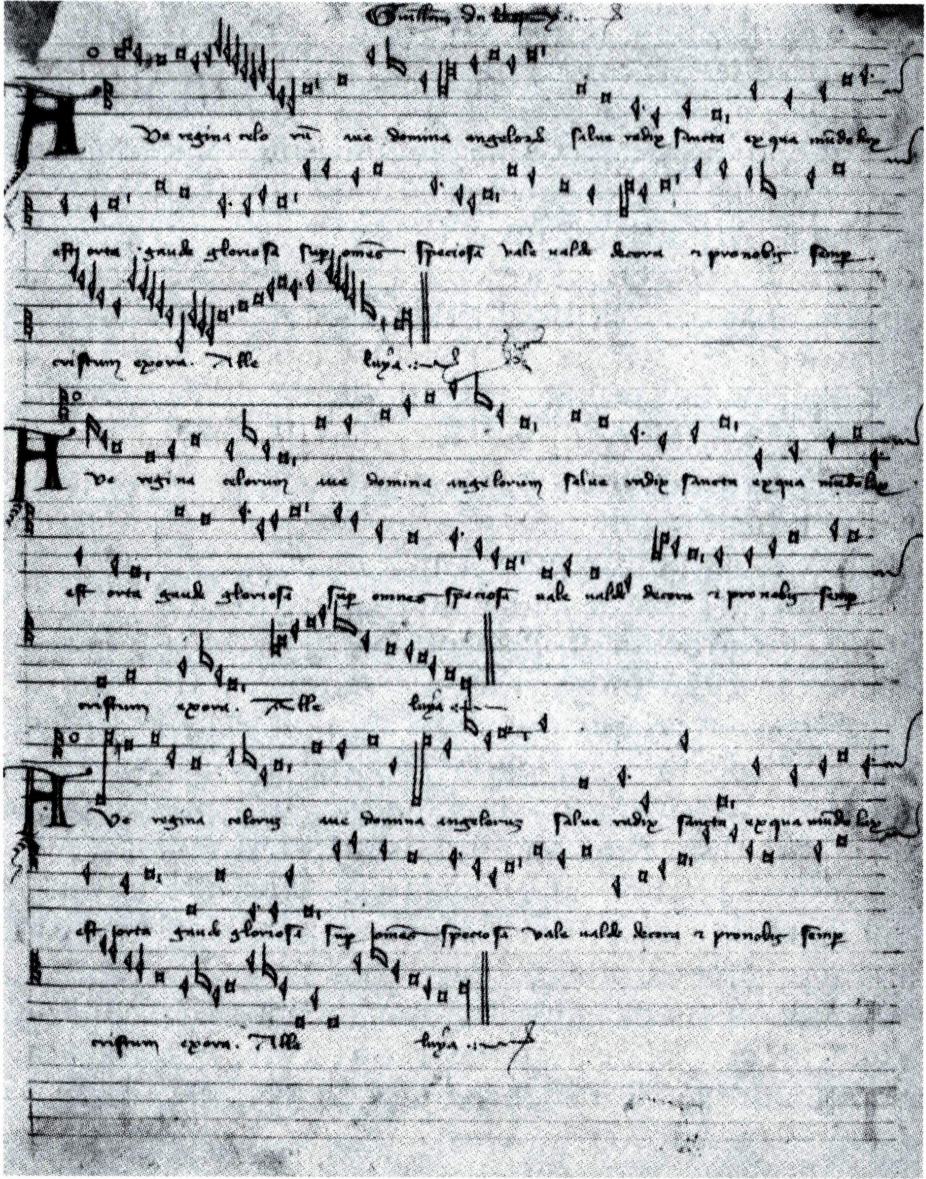 Guillmus du
AVe regina celo rū aue domina angeloꝝ salue radix sancta ex qua mūdo lux
est orta gaude gloriosa suꝑ omēs speciosa vale ualde decora ⁊ pro nobis semꝑ
cristum exora. Alle luya
AVe regina celorum aue domina angelorum salue radix sancta ex qua mūdo lux
est orta gaude gloriosa suꝑ omnes speciosa uale ualde decora ⁊ pro nobis semꝑ
cristum exora. Alle luya
AVe regina celorum aue domina angelorum salue radix sancta ex qua mūdo lux
est orta gaude gloriosa suꝑ omēs speciosa vale ualde decora ⁊ pro nobis semꝑ
cristum exora. Alle luya